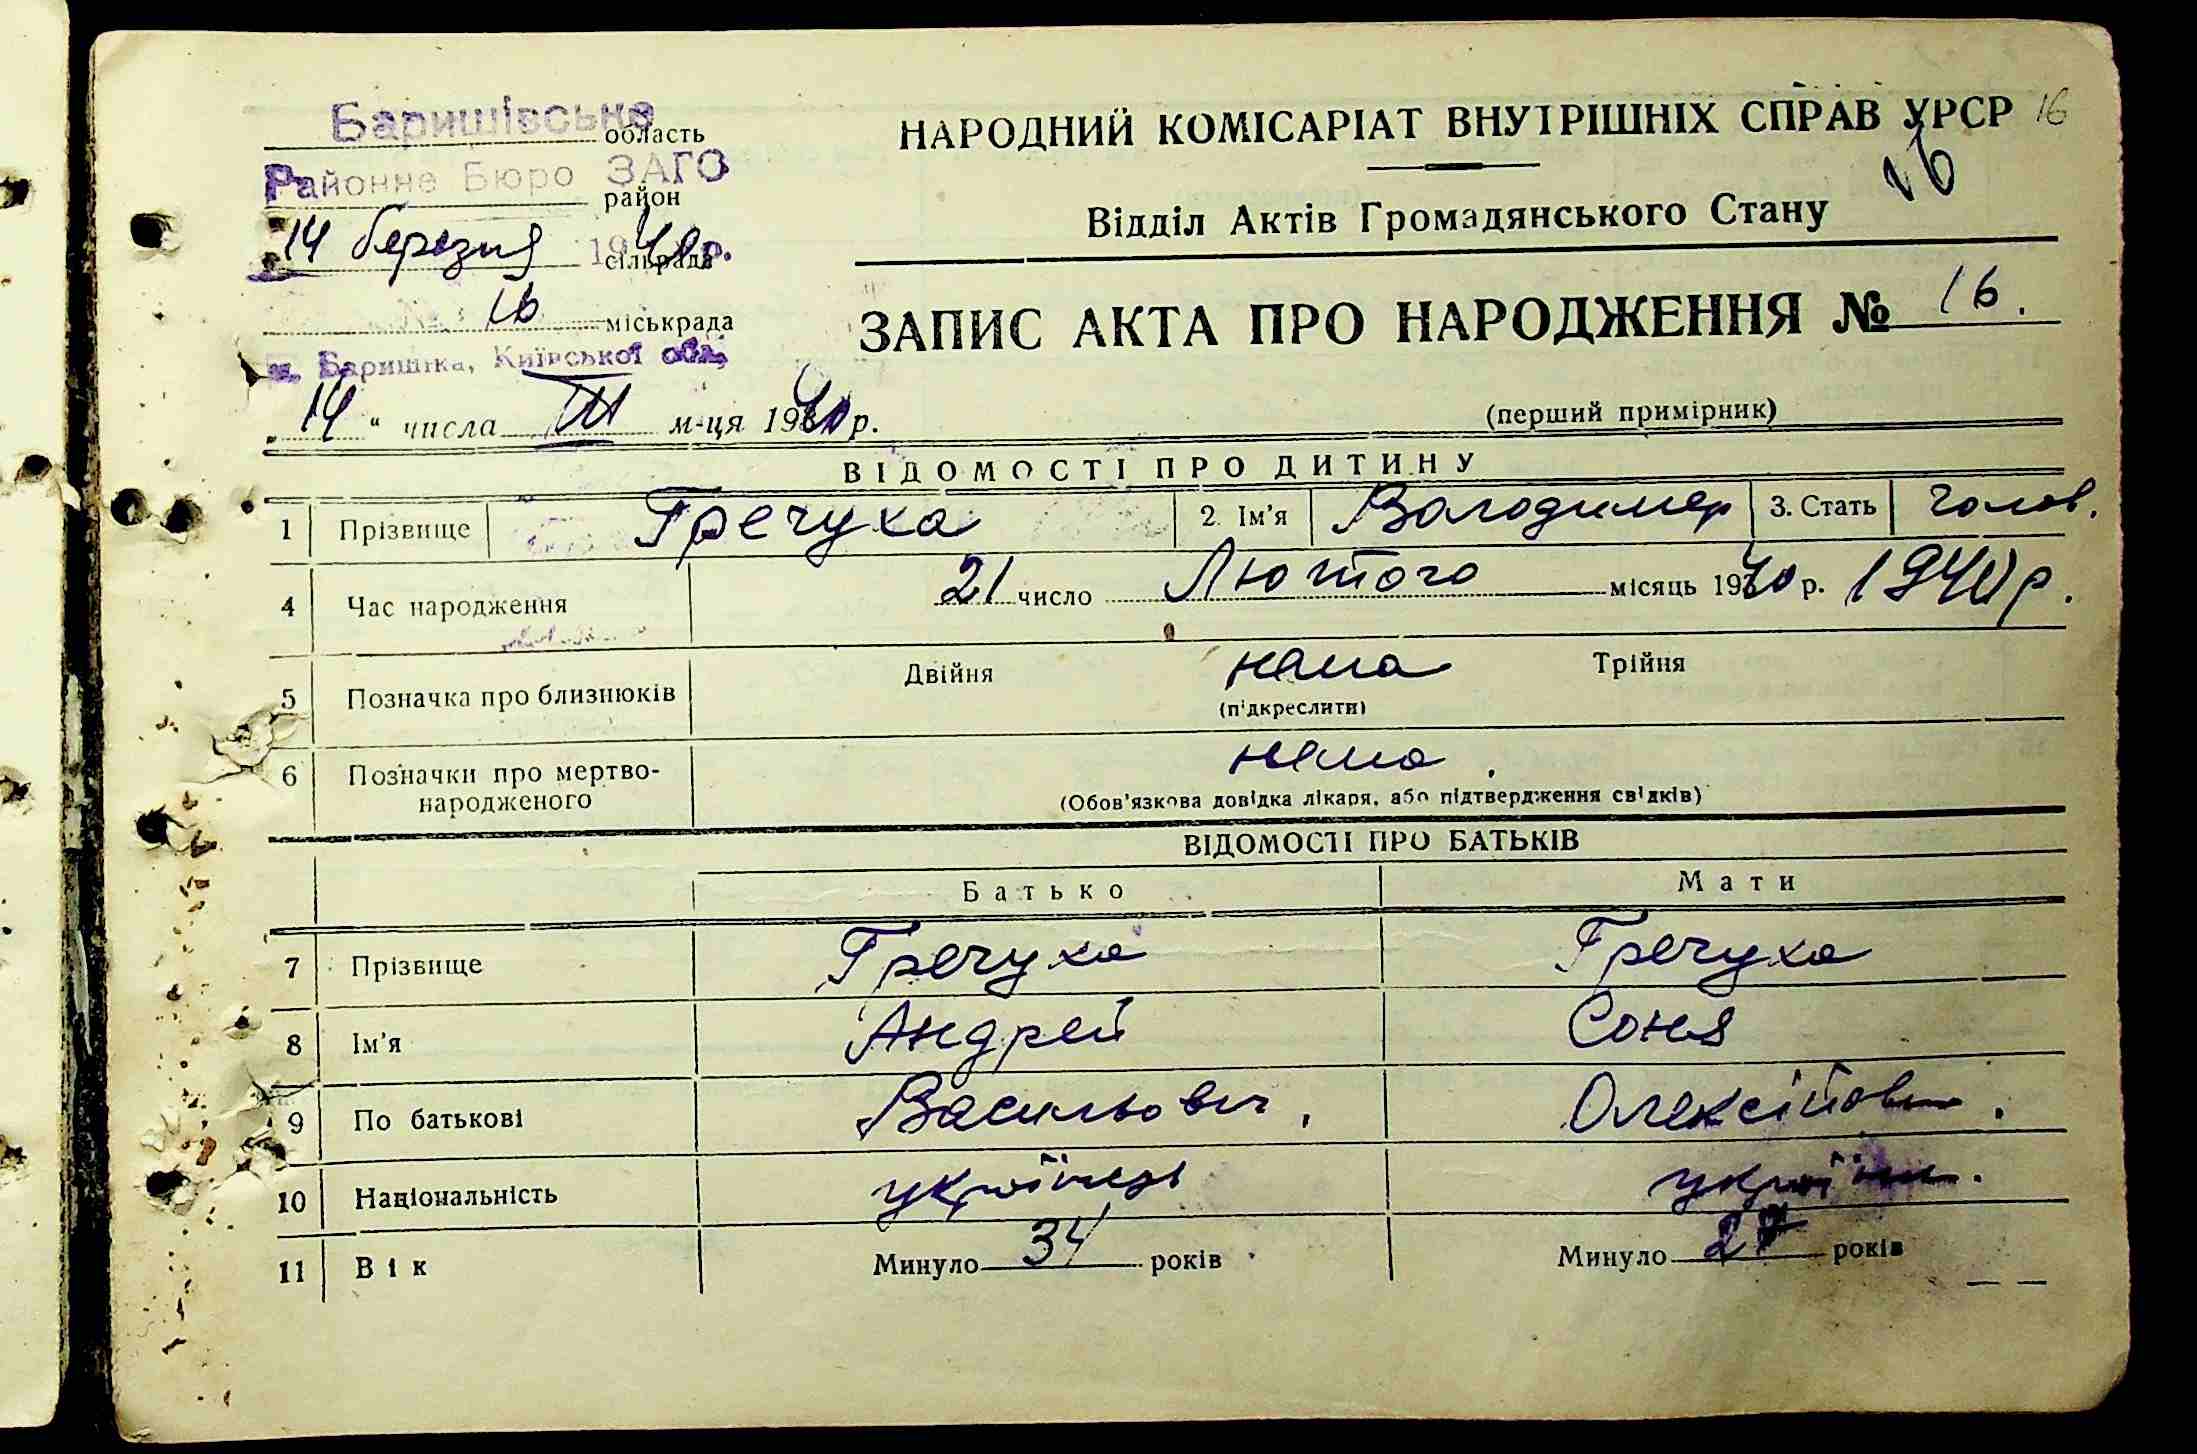 Баришівське область
Районне Бюро ЗАГС район
14 березня 1940р. сільрада
16 міськрада
м. Баришівка, Київської обл.
„14“ числа III м-ця 1940 р.
НАРОДНИЙ КОМІСАРІАТ ВНУТРІШНІХ СПРАВ УРСР 16
16
Відділ Актів Громадянського Стану
ЗАПИС АКТА ПРО НАРОДЖЕННЯ № 16.
(перший примірник)
ВІДОМОСТІ ПРО ДИТИНУ
1 Прізвище Гречуха 2. Ім'я Володимер 3. Стать Чолов.
4 Час народження 21 число Лютого місяць 1940 р. 1940 р.
5 Позначка про близнюків Двійня нема Трійня
(підкреслити)
6 Позначки про мертво-народженого нема.
(Обов'язкова довідка лікаря, або підтвердження свідків)
ВІДОМОСТІ ПРО БАТЬКІВ
Батько Мати
7 Прізвище Гречуха Гречуха
8 Ім'я Андрей Соня
9 По батькові Васильович. Олексійовн.
10 Національність українець україн.
11 Вік Минуло 34 років Минуло 27 років